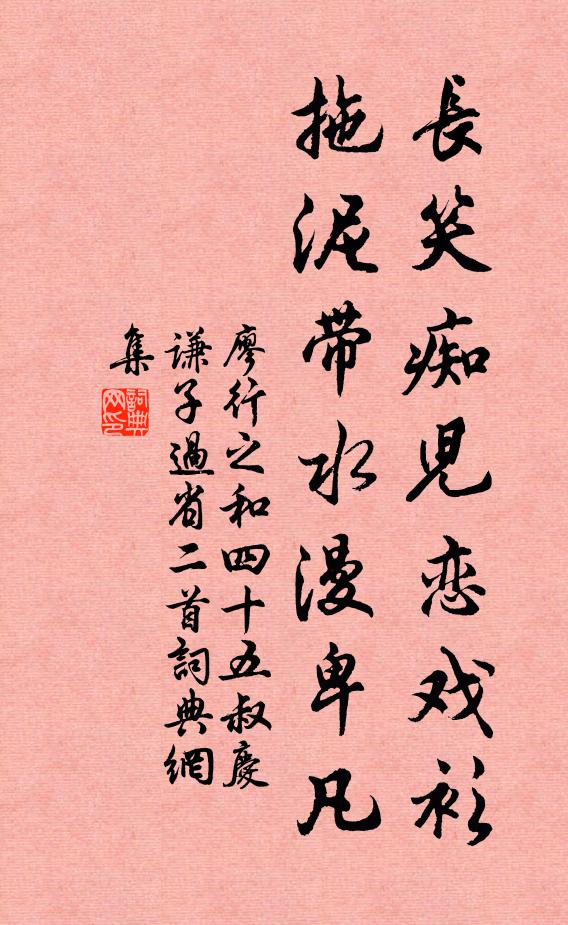 長笑痴児恋戏衫
拖泥带水漫卑凡
廖行之和四十五叔慶
謙子過省二首詞典網
集
詞典
网印